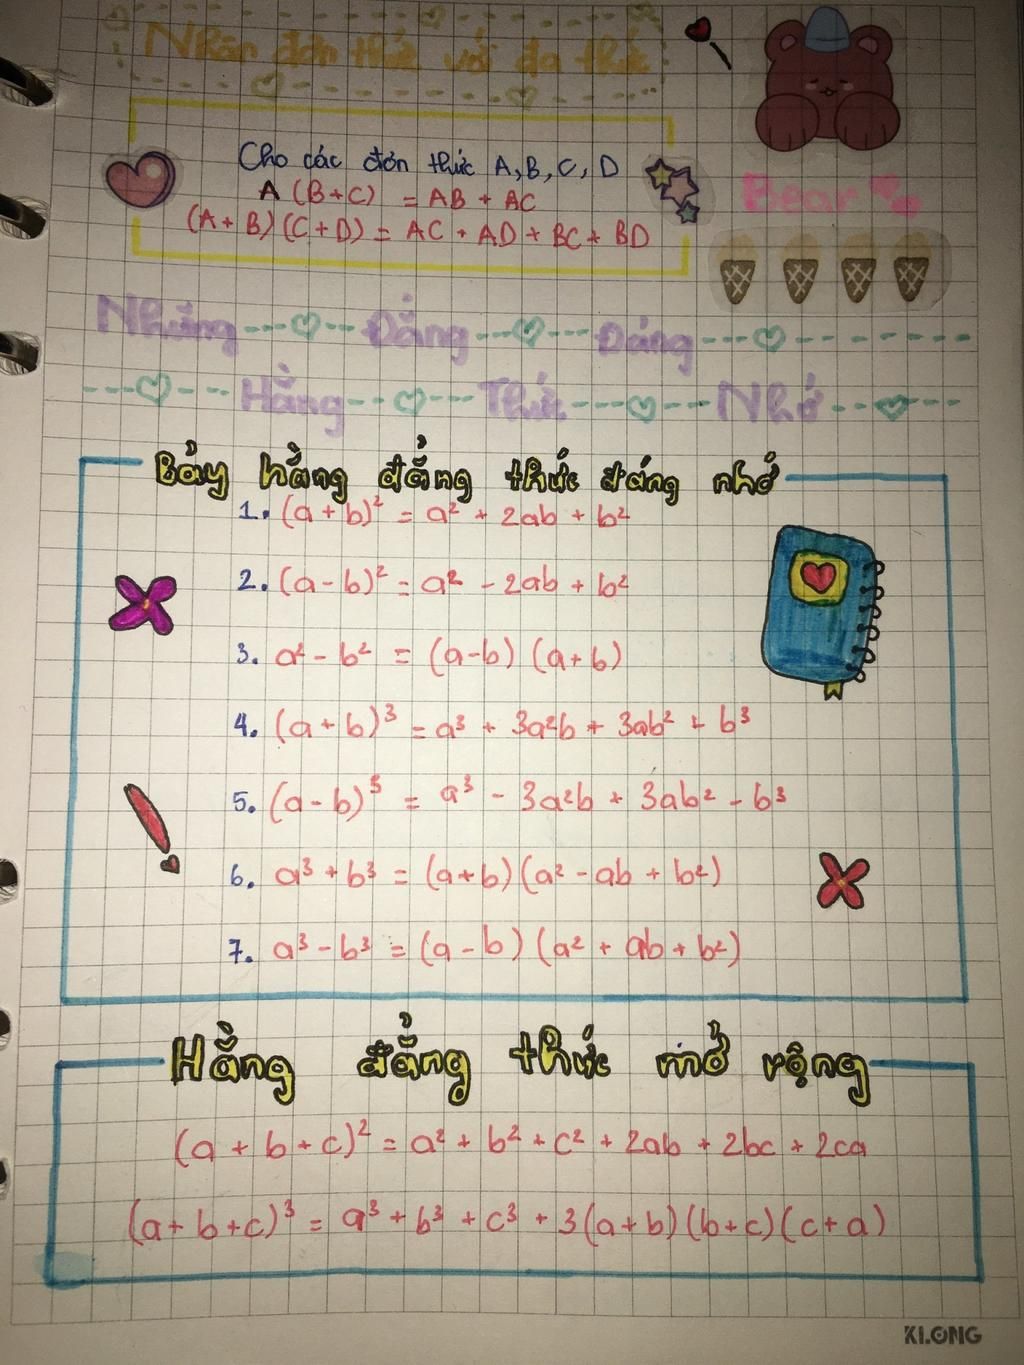 Nhân đơn thức với đa thức
Cho các đơn thức A, B, C, D
A (B+C) = AB + AC
(A+B)(C+D) = AC + AD + BC + BD
Bear
Những Đẳng Đáng
Hằng Thức Nhớ
Bảy hằng đẳng thức đáng nhớ
1. (a+b)² = a² + 2ab + b²
2. (a-b)² = a² - 2ab + b²
3. a² - b² = (a-b) (a+b)
4. (a+b)³ = a³ + 3a²b + 3ab² + b³
5. (a-b)³ = a³ - 3a²b + 3ab² - b³
6. a³ + b³ = (a+b)(a² - ab + b²)
7. a³ - b³ = (a-b) (a² + ab + b²)
Hằng đẳng thức mở rộng
(a+b+c)² = a² + b² + c² + 2ab + 2bc + 2ca
(a+b+c)³ = a³ + b³ + c³ + 3(a+b)(b+c)(c+a)
KLONG